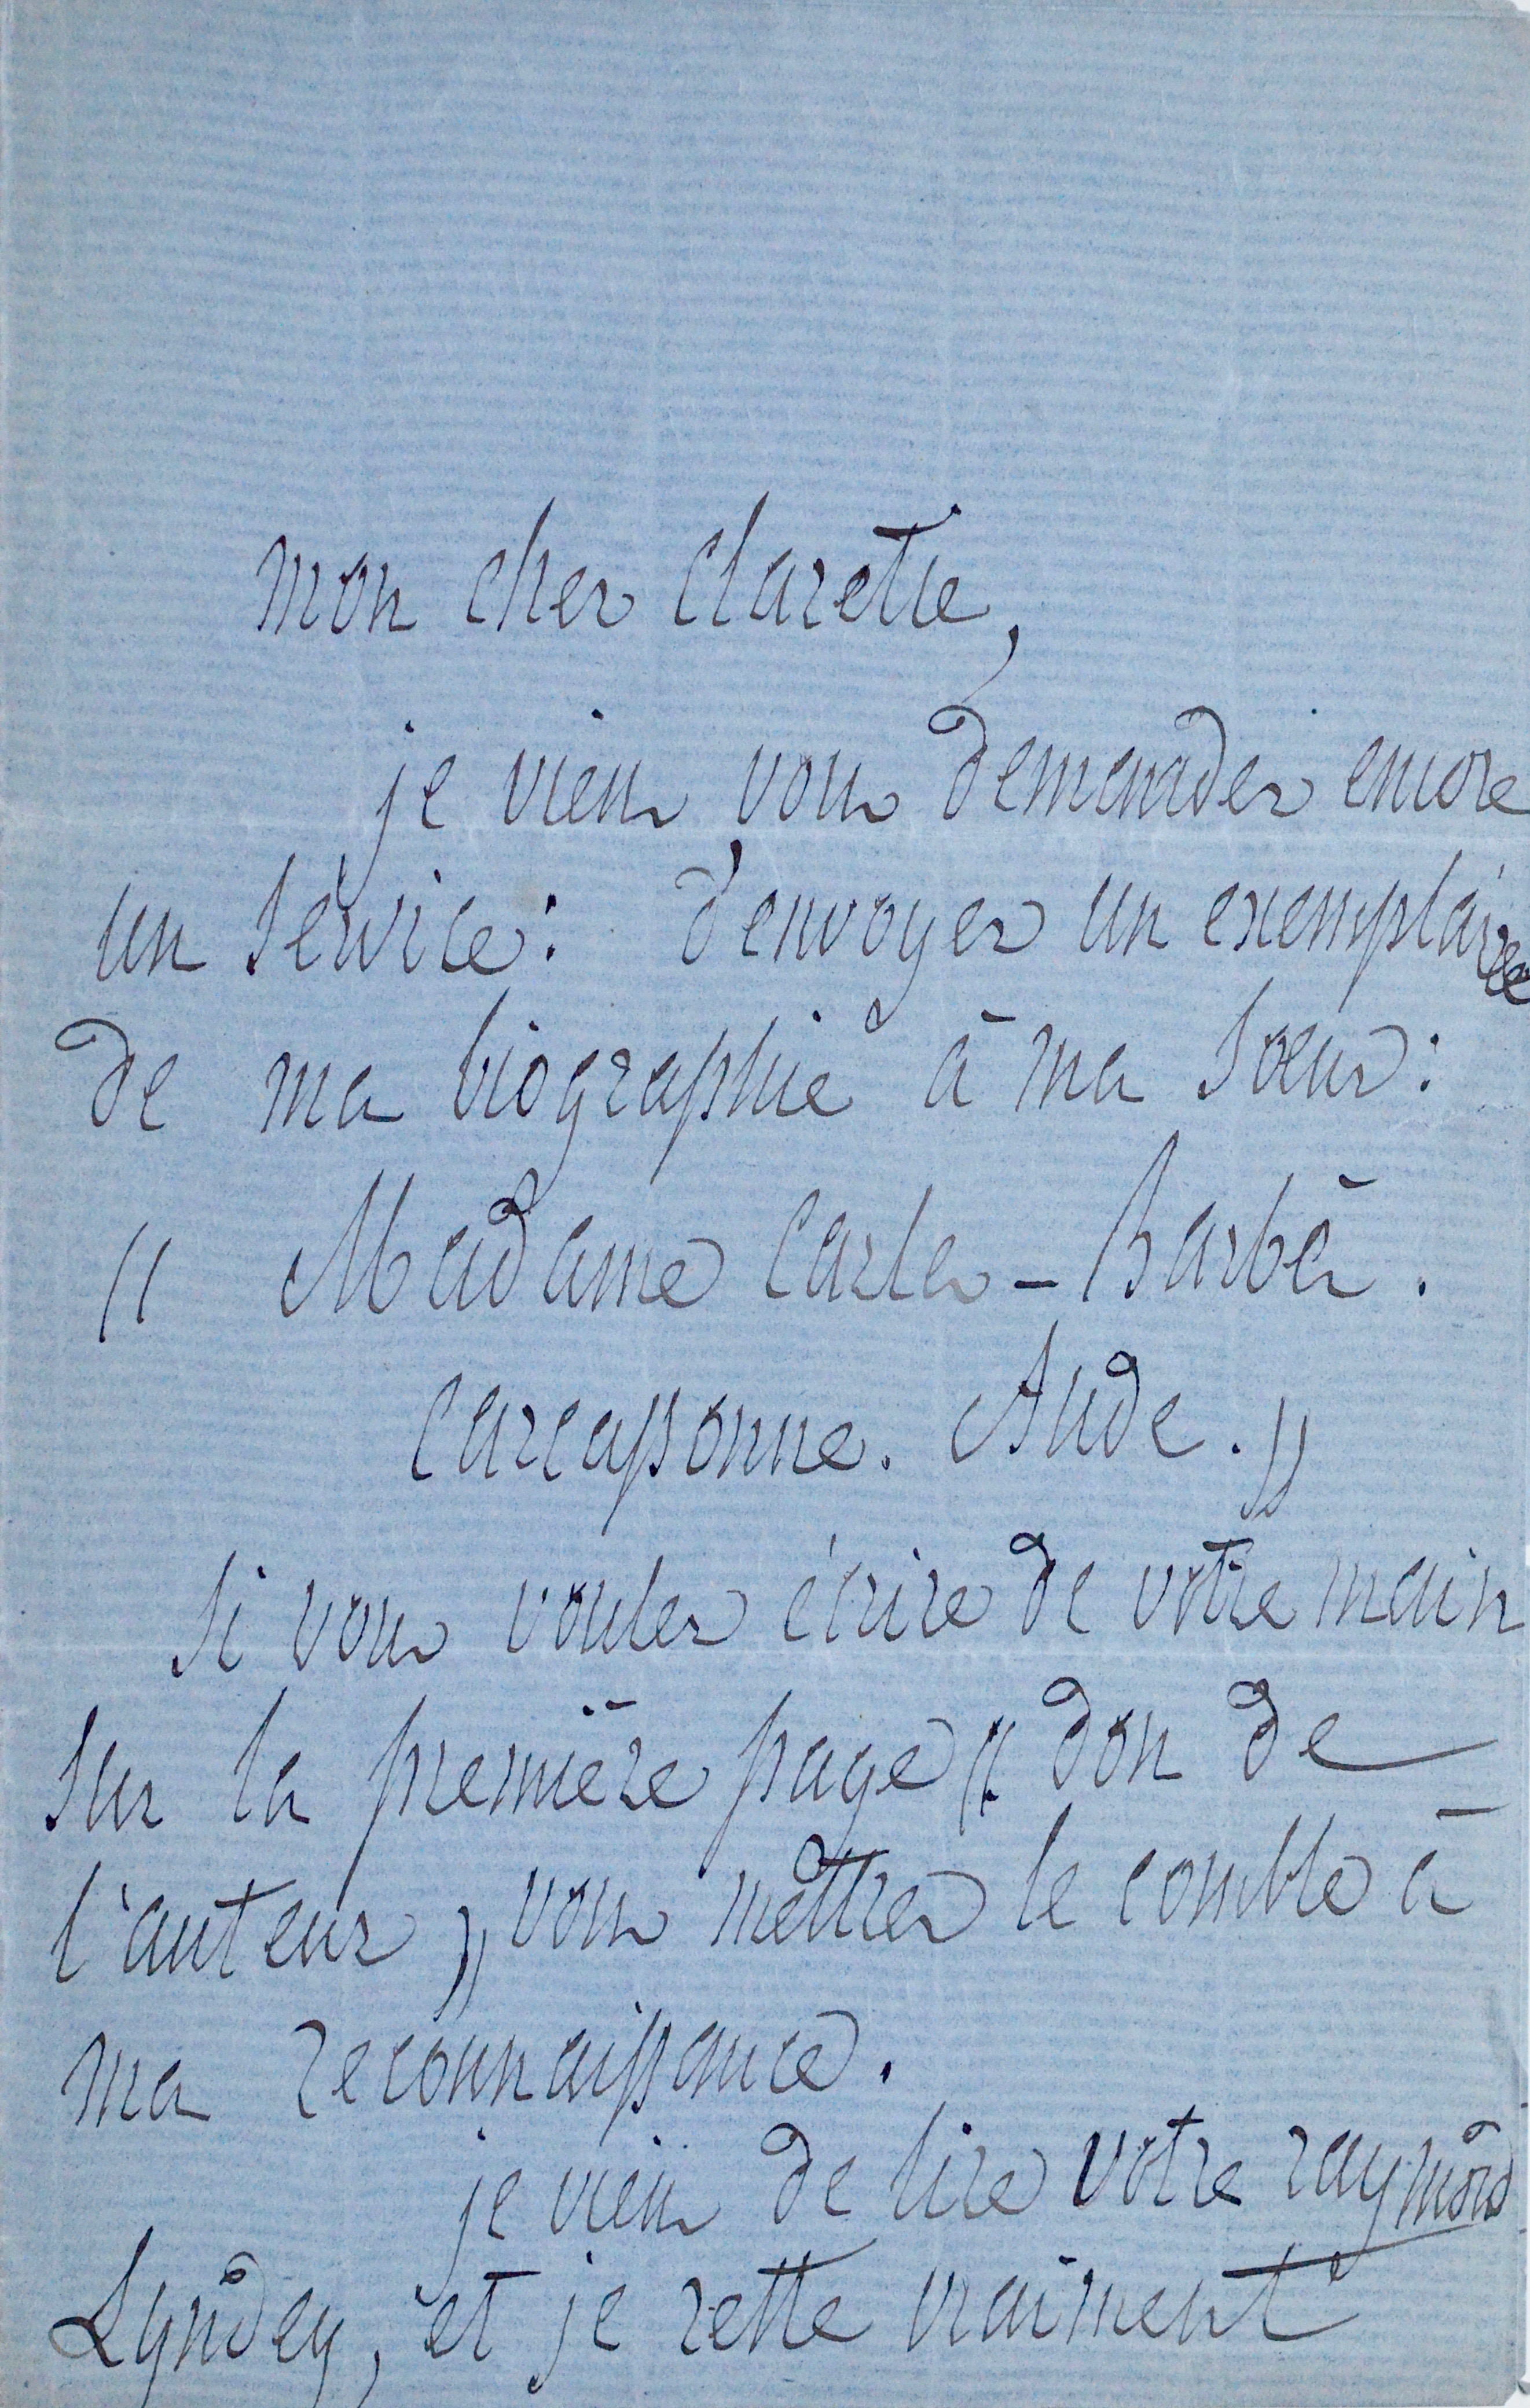 mon cher Claretie,
je viens vous demander encore
un service: d'envoyer un exemplaire
de ma biographie à ma sœur:
(( Madame Carles - Barbès.
Carcassonne. Aude. ))
Si vous voulez écrire de votre main
sur la première page (( don de
l'auteur )) vous mettrez le comble à
ma reconnaissance.
je viens de lire votre raymond
Lyndey, et je reste vraiment